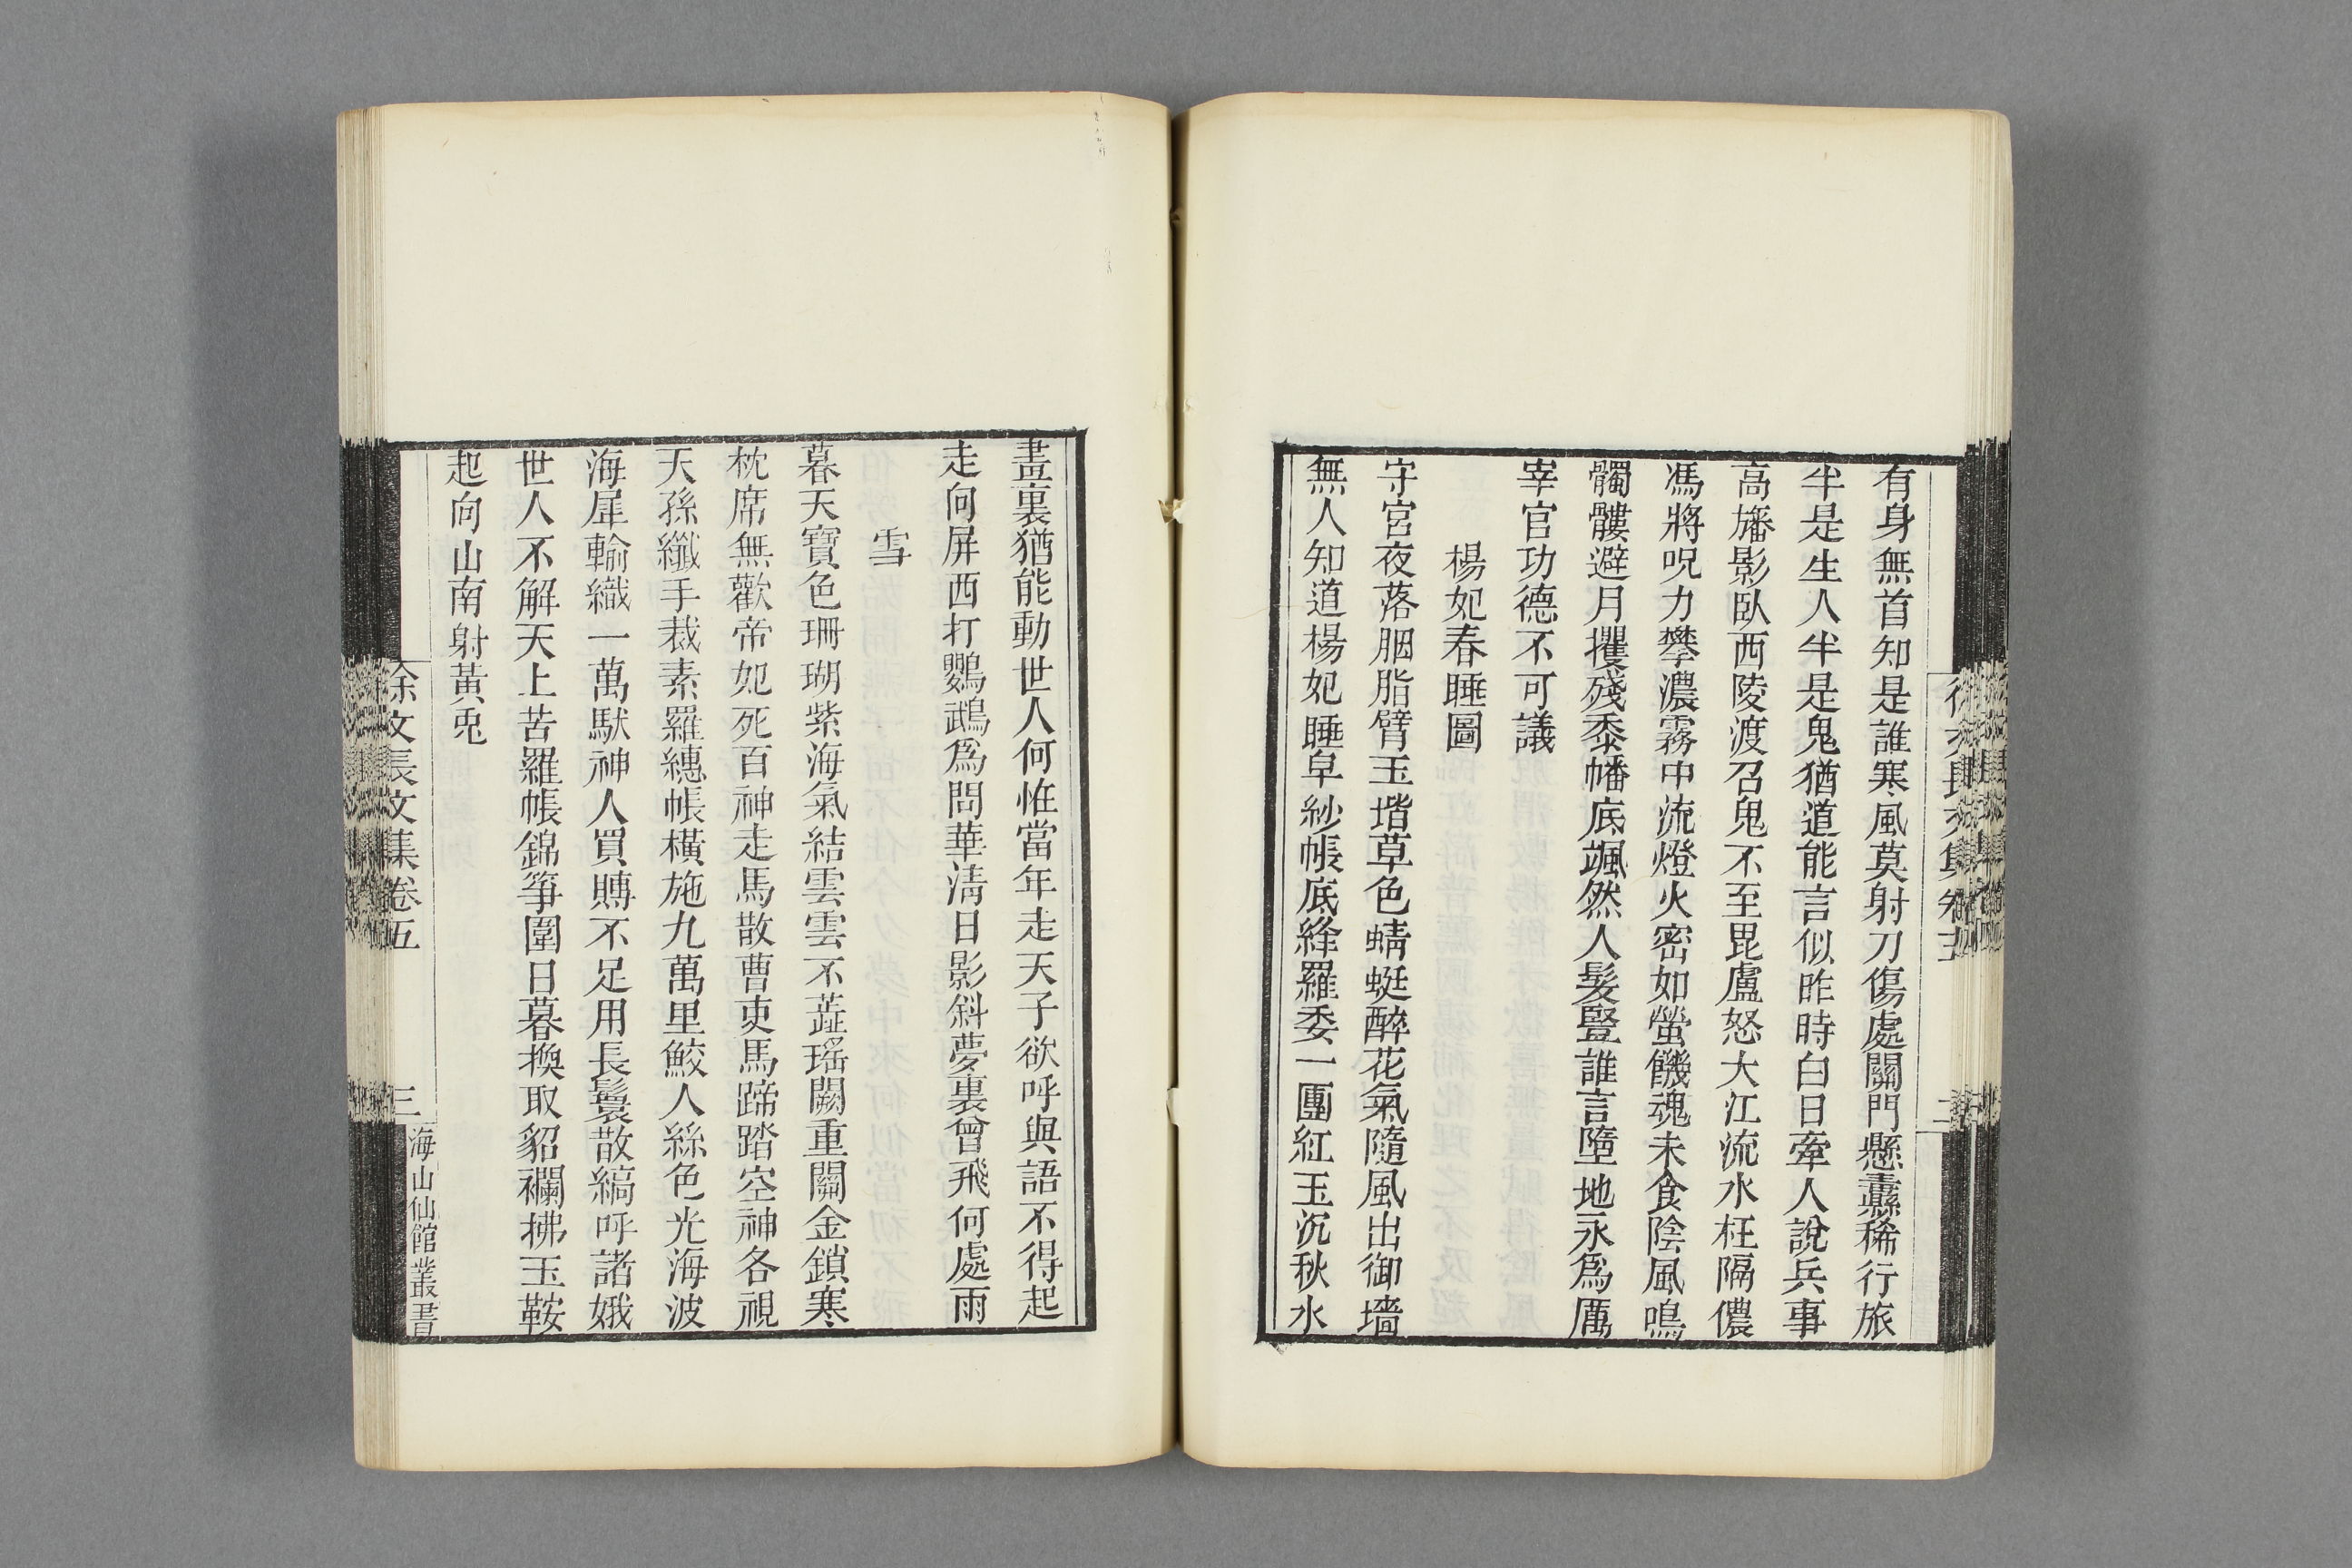 有身無首知是誰寒風莫射刀傷處關門懸纛稀行旅
半是生人半是鬼猶道能言似昨時白日牽人說兵事
高旛影臥西陵渡召鬼不至毘盧怒大江流水枉隔儂
馮將呪力攀濃霧中流燈火密如螢饑魂未食陰風鳴
髑髏避月攫殘黍幡底颯然人髮豎誰言墮地永爲厲
宰官功德不可議
楊妃春睡圖
守宮夜落胭脂臂玉堦草色蜻蜓醉花氣隨風出御墻
無人知道楊妃睡皁紗帳底絳羅委一團紅玉沉秋水
畫裏猶能動世人何怪當年走天子欲呼與語不得起
走向屏西打鸚鵡爲問華清日影斜夢裏曾飛何處雨
雪
暮天寶色珊瑚紫海氣結雲雲不蘂瑤闕重關金鎖寒
枕席無歡帝妃死百神走馬散曹吏馬蹄踏空神各視
天孫纖手裁素羅繐帳橫施九萬里鮫人絲色光海波
海犀輸織一萬馱神人買賻不足用長鬟散縞呼諸娥
世人不解天上苦羅帳錦箏圍日暮換取貂襴拂玉鞍
起向山南射黃兎
徐文長文集卷五
三
海山仙館叢書